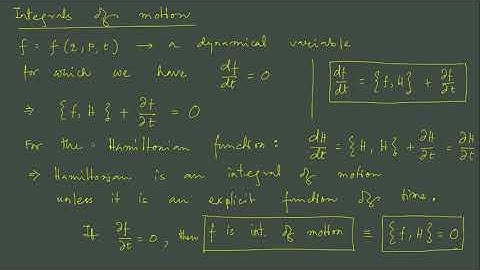 Integrals of motion
f = f(q, p, t) → a dynamical variable
for which we have df/dt = 0
df/dt = {f, H} + ∂f/∂t
⇒ {f, H} + ∂f/∂t = 0
For the Hamiltonian function: dH/dt = {H, H} + ∂H/∂t = ∂H/∂t
⇒ Hamiltonian is an integral of motion
unless it is an explicit function of time.
If ∂f/∂t = 0, then f is int. of motion ≡ {f, H} = 0